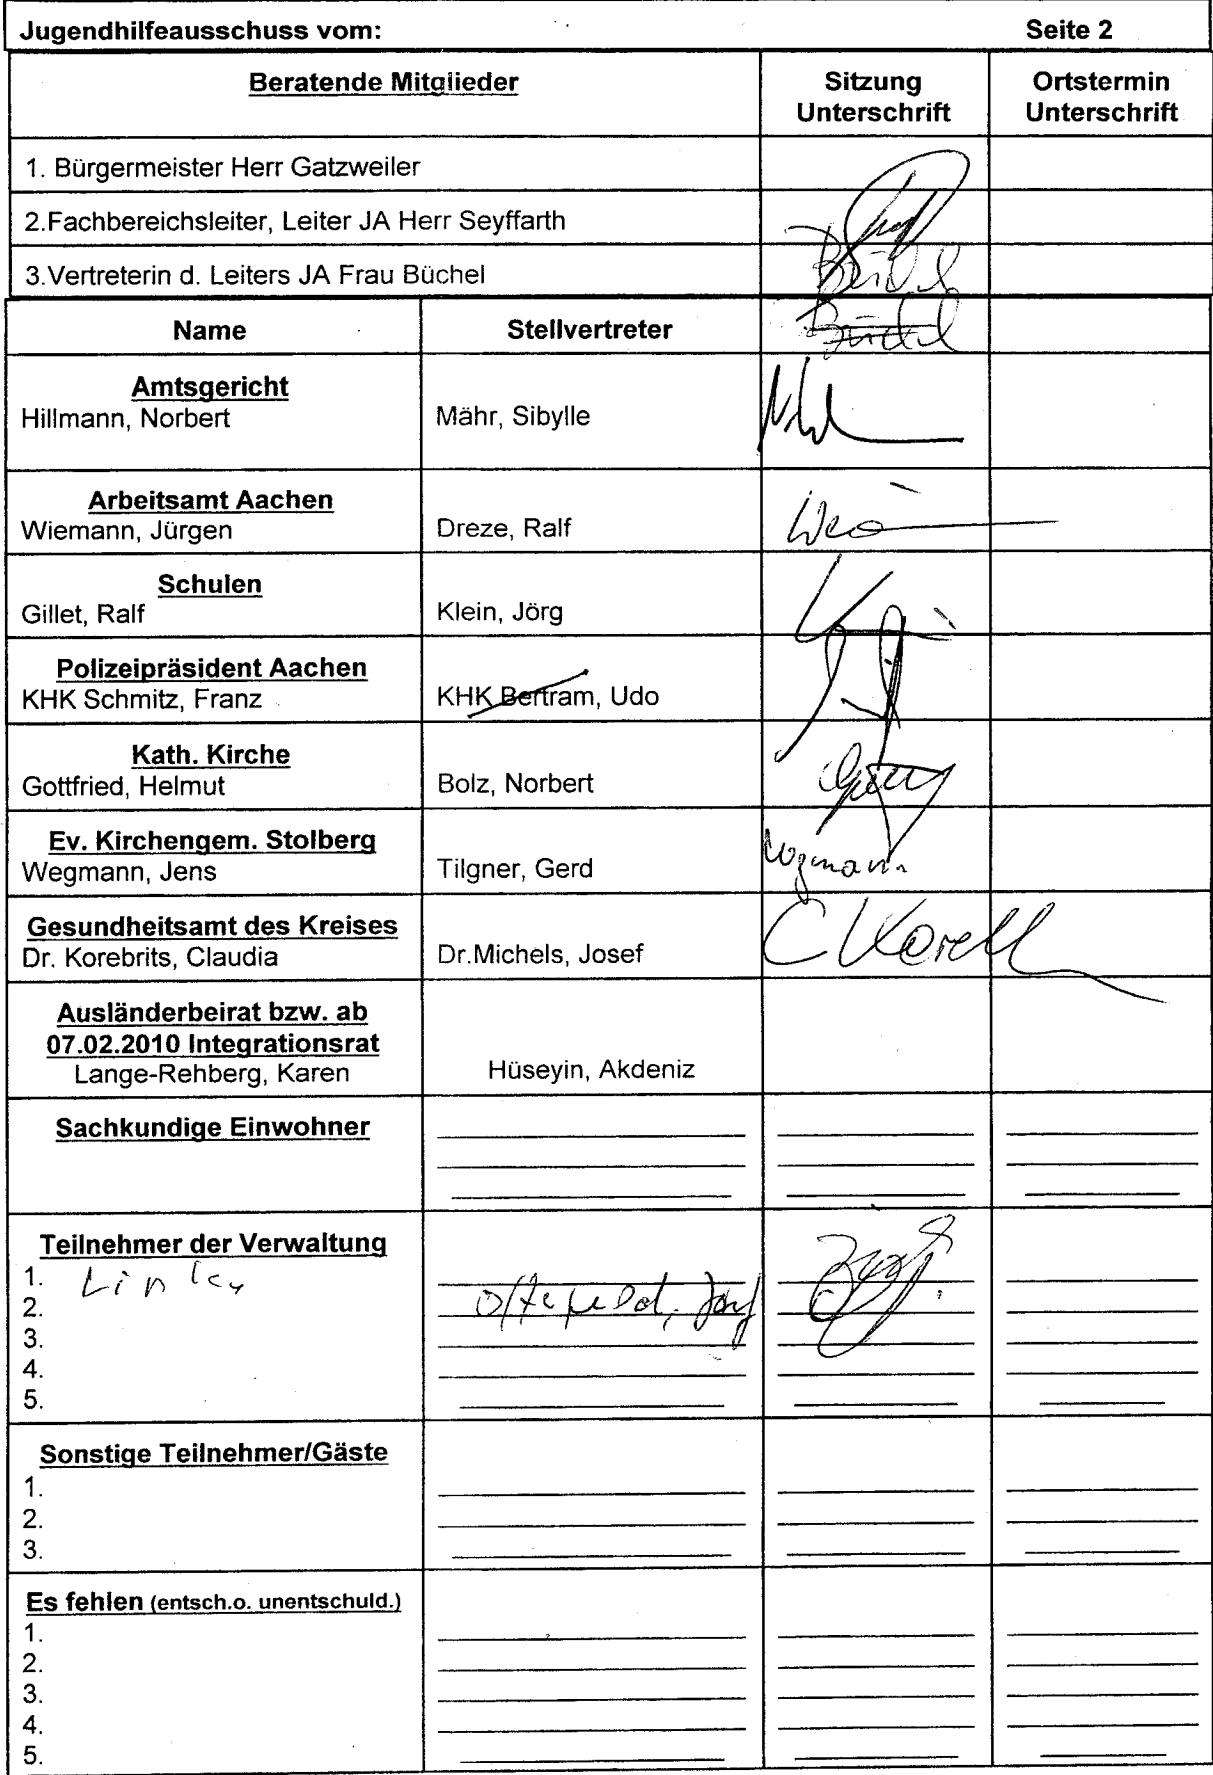 Jugendhilfeausschuss vom: Seite 2
Beratende Mitglieder Sitzung Unterschrift Ortstermin Unterschrift
1. Bürgermeister Herr Gatzweiler
2.Fachbereichsleiter, Leiter JA Herr Seyffarth
3.Vertreterin d. Leiters JA Frau Büchel Büchel
Name Stellvertreter Büchel
Amtsgericht
Hillmann, Norbert Mähr, Sibylle
Arbeitsamt Aachen
Wiemann, Jürgen Dreze, Ralf
Schulen
Gillet, Ralf Klein, Jörg
Polizeipräsident Aachen
KHK Schmitz, Franz KHK Bertram, Udo
Kath. Kirche
Gottfried, Helmut Bolz, Norbert
Ev. Kirchengem. Stolberg
Wegmann, Jens Tilgner, Gerd Wegmann
Gesundheitsamt des Kreises
Dr. Korebrits, Claudia Dr.Michels, Josef
Ausländerbeirat bzw. ab
07.02.2010 Integrationsrat
Lange-Rehberg, Karen Hüseyin, Akdeniz
Sachkundige Einwohner
Teilnehmer der Verwaltung
1.
2.
3.
4.
5.
Sonstige Teilnehmer/Gäste
1.
2.
3.
Es fehlen (entsch.o. unentschuld.)
1.
2.
3.
4.
5.